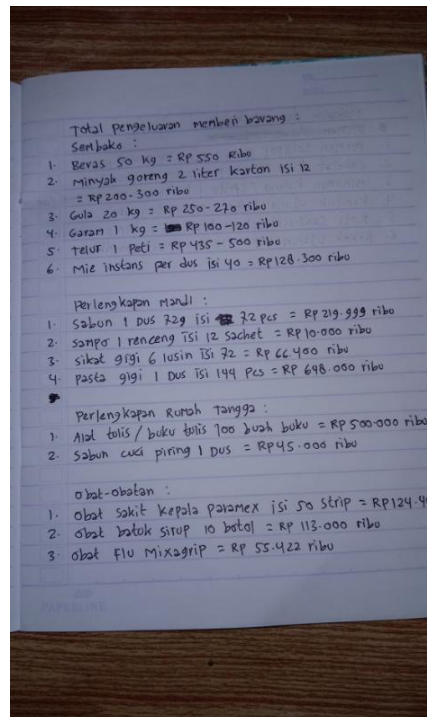 Total Pengeluaran memberi barang :
Sembako :
1. Beras 50 kg = Rp 550 Ribu
2. Minyak goreng 2 liter karton isi 12
= Rp 200 - 300 ribu
3. Gula 20 kg = Rp 250 - 270 ribu
4. Garam 1 kg = Rp 100 - 120 ribu
5. Telur 1 Peti = Rp 435 - 500 ribu
6. Mie instans per dus isi 40 = Rp 128.300 ribu
Perlengkapan Mandi :
1. Sabun 1 Dus 72g isi 72 pcs = Rp 219.999 ribu
2. Sampo 1 renceng isi 12 sachet = Rp 10.000 ribu
3. sikat gigi 6 lusin isi 72 = Rp 66.400 ribu
4. pasta gigi 1 Dus isi 144 Pcs = Rp 648.000 ribu
Perlengkapan Rumah Tangga :
1. Alat tulis / buku tulis 100 buah buku = Rp 500.000 ribu
2. Sabun cuci piring 1 Dus = Rp 45.000 ribu
obat-obatan :
1. obat sakit kepala paramex isi 50 strip = Rp 124.4
2. obat batuk sirup 10 botol = Rp 113.000 ribu
3. obat Flu Mixagrip = Rp 55.422 ribu
PAPERLINE